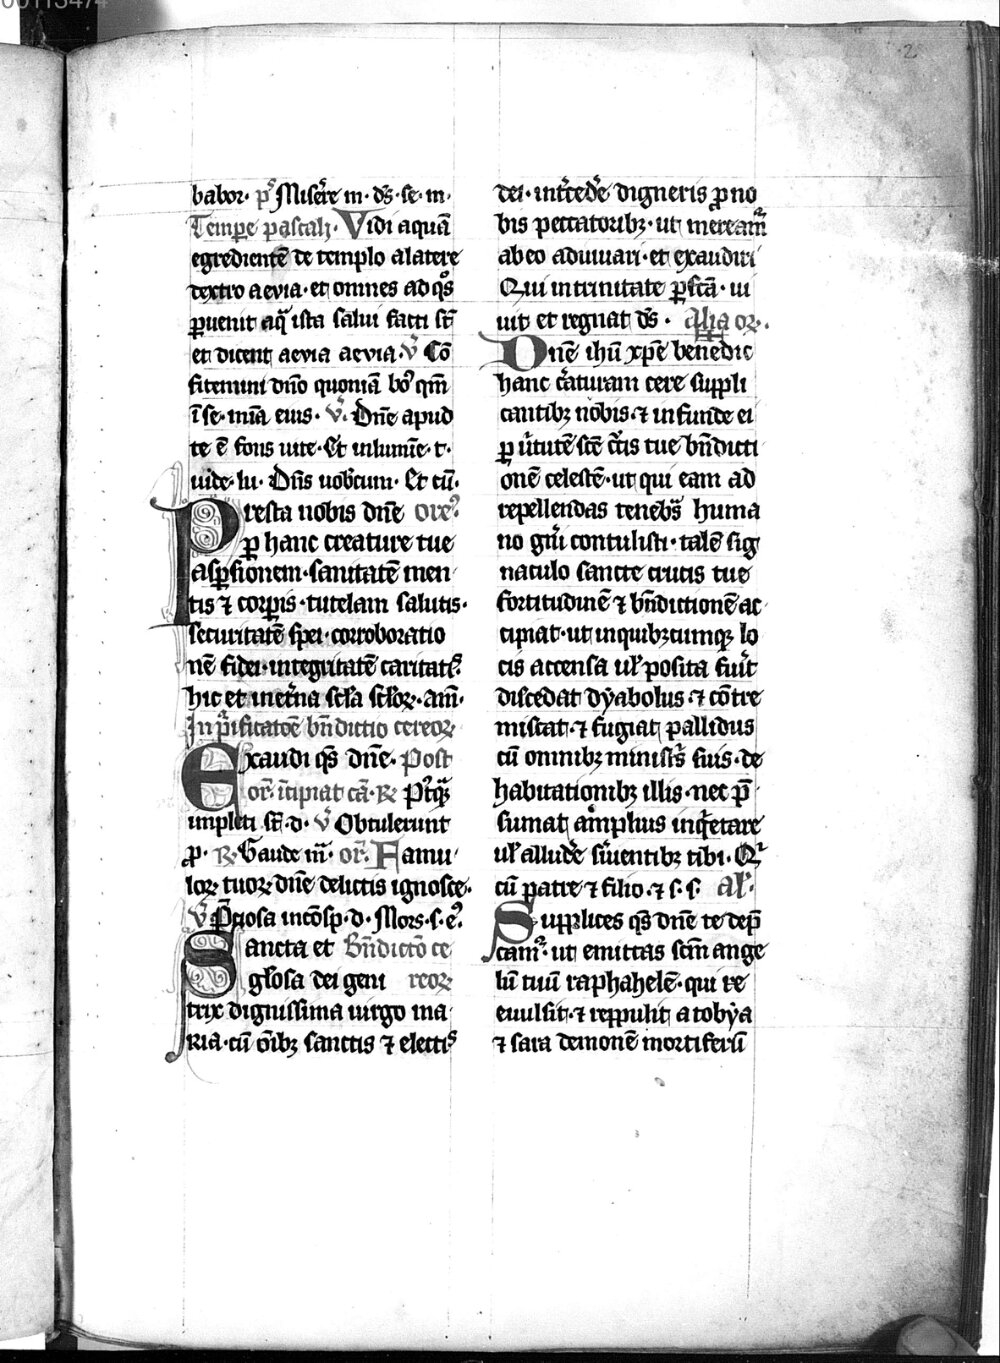 00113474
2
babor· pˢ Miẜere m· ds̄·se·m·
Tempe pascali· Vidi aquā
egredientē de templo a latere
dextro aevia·et omnes ad qͦs
ꝑuenit aq̄ ista salui facti st̄
et dicent aevia aevia·V̄ Cō
fitemini dn̄o quoniā boꝰ qm̄
ī se·mīa eius·V̄·Dn̄e apud
te ē fons uite·Et in lumīe·t·
uide·lu·Dn̄s uob̄cum·Et cū·
Presta nobis dn̄e orēꝰ·
ꝑ hanc creature tue
aspersionem·sanitatē men
tis ⁊ corꝑis·tutelam salutis·
securitatē spei·corroboratio
nē fidei·integritatē caritatꝭ·
hic et in et̄na sc̄la sc̄loꝝ·am̄·
In p̄ificatōe bn̄dictio cereoꝝ
Exaudi qs̄ dn̄e· Post
or̄·īcipiat cā·℞ Pꝰtqͣꝫ
impleti st̄·d·V̄ Obtulerunt
ꝓ·℞·Gaude m̄·or̄·Famu
loꝝ tuoꝝ dn̄e delictis ignosce·
V̄ P̄ciosa in cōsp̄·d·Mors·s·eꝰ·
Sancta et Bn̄dictō ce
gl̄osa dei geni reoꝝ
trix dignissima uirgo ma
ria·cū oīb̄ꝫ sanctis ⁊ electꝭ
dei·int̄cedē digneris ꝓ no
bis peccatoribꝫ·ut mereamͬ
ab eo adiuuari·et exaudiri
Qui in trinitate ꝑfc̄ā·ui
uit et regnat ds̄· Alia or̄·
Dn̄e ihū xp̄e benedic
hanc c̄aturam cere suppli
cantibꝫ nobis·⁊ infunde ei
ꝑ ū̄tutē sc̄e c̄cis tue bn̄dicti
onē celestē·ut qui eam ad
repellendas teneb̄s huma
no gn̄i contulisti·talē sig
naculo sancte crucis tue
fortitudinē ⁊ bn̄dictionē ac
cipiat·ut in quibꝫcumqꝫ lo
cis accensa ul̄ posita fūit
discedat dyabolus·⁊ cōtre
miscat·⁊ fugiat pallidus
cū omnibꝫ minist̄s suis·de
habitationibꝫ illis·nec p̄
sumat amplius inq̄etare
ul̄ alludē s̄uientibꝫ tibi·Qͥ
cū patre ⁊ filio·⁊ s·s· Al̄·
Supplices qs̄ dn̄e te dep̄
camͬ·ut emittas scm̄ ange
lū tuū raphahelē·qui re
euulsit·⁊ reppulit a tobya
⁊ sara demonē mortiferū